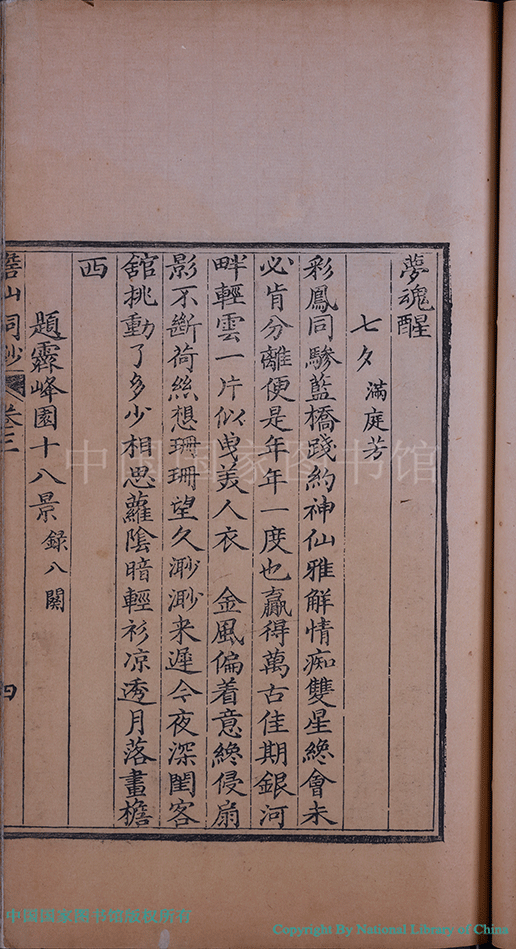 夢魂醒
七夕 滿庭芳
彩鳳同驂藍橋踐約神仙雅解情痴雙星纔會未
必肯分離便是年年一度也贏得萬古佳期銀河
畔輕雲一片似曳美人衣 金風偏着意纔侵扇
影不斷荷絲想珊珊望久渺渺来遲今夜深閨客
舘挑動了多少相思蘿陰暗輕衫凉透月落畫檐
西
題霽峰園十八景 錄八闋
山詞鈔 卷三 四
中国国家图书馆
中国国家图书馆版权所有
Copyright By National Library of China